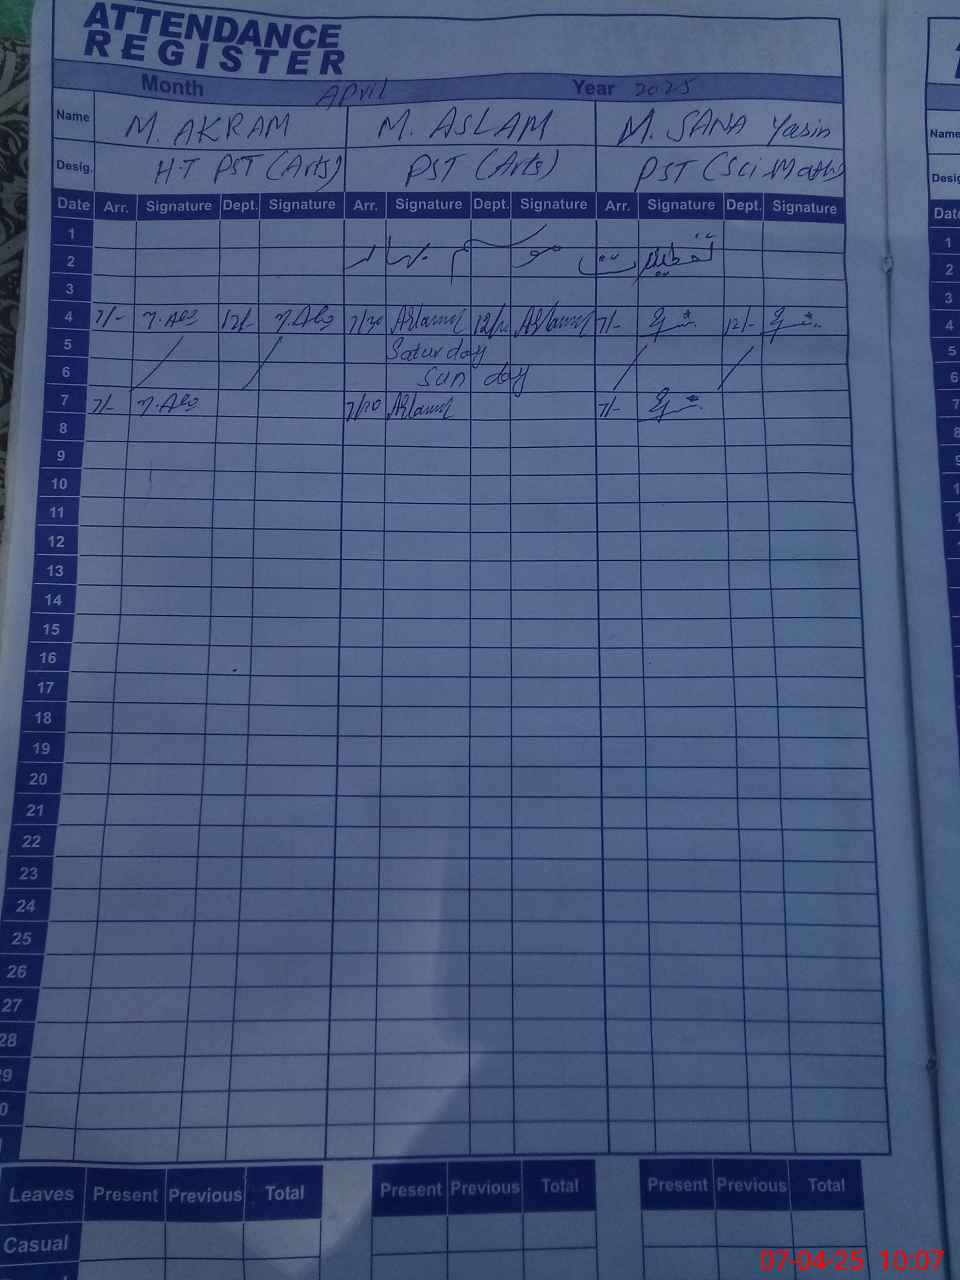 ATTENDANCE
REGISTER
Month April Year 2025
Name M. AKRAM M. ASLAM M. SANA Yasin
Name
Desig. H-T PST (Arts) PST (Arts) PST (Sci-Maths)
Desig
Date Arr. Signature Dept. Signature Arr. Signature Dept. Signature Arr. Signature Dept. Signature
Date
1 1
2 تعطیلات موسم بہار 2
3 3
4 7/- 12/- 7/30 Aslam Aslam 7/- 12/- 4
5 Saturday 5
6 Sunday 6
7 7/- 7/30 Aslam 7/- 7
8 8
9
10
11
12
13
14
15
16
17
18
19
20
21
22
23
24
25
26
27
28
Leaves Present Previous Total Present Previous Total Present Previous Total
Casual
07-04-25 10:07